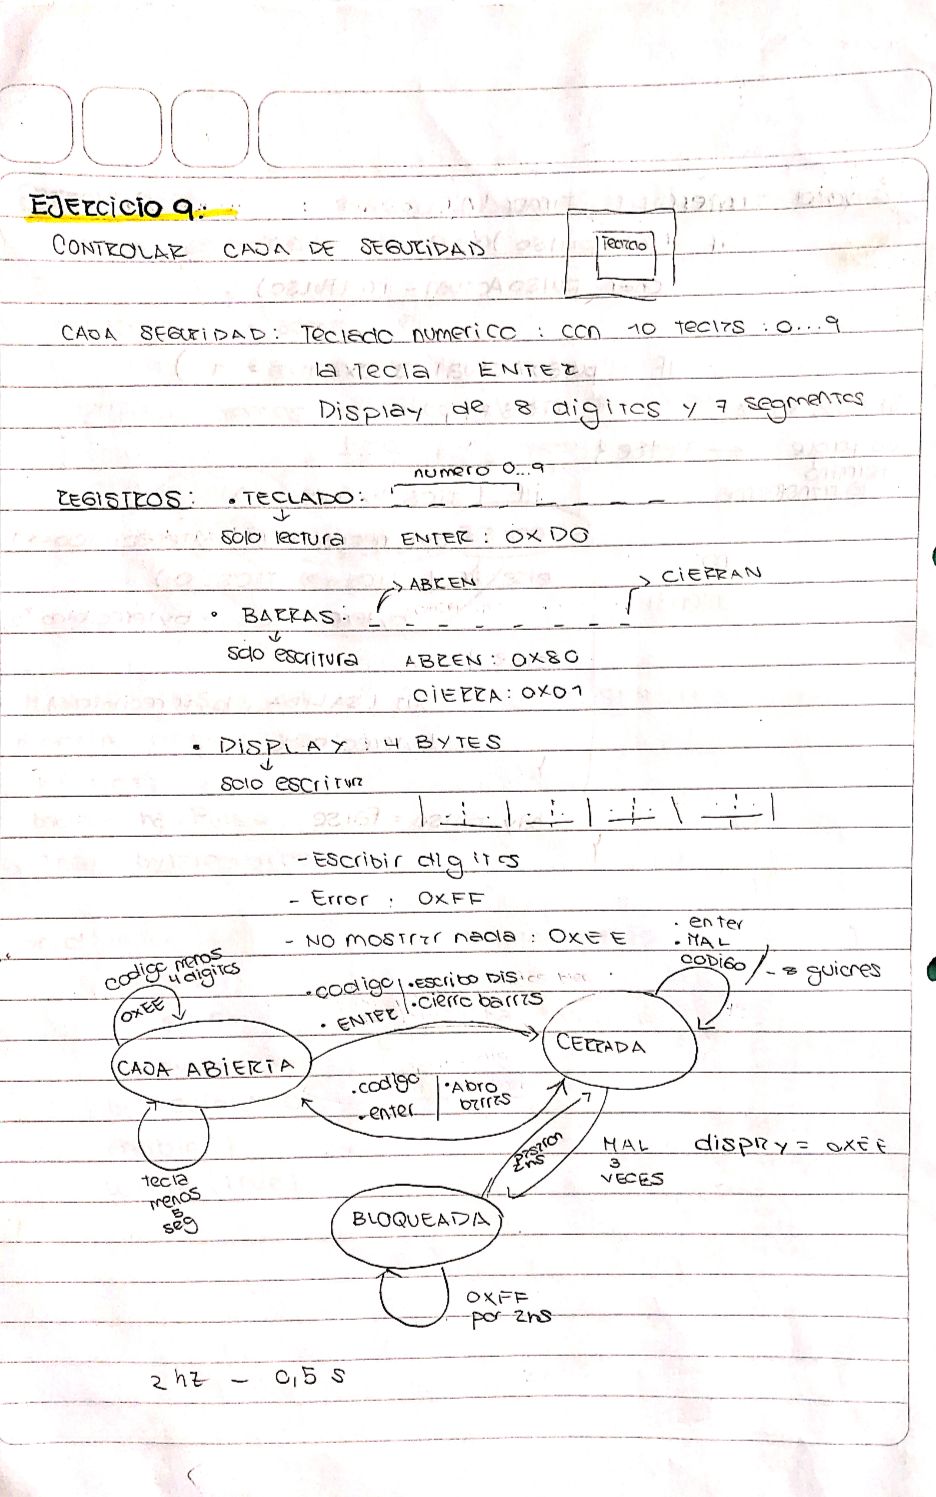 EJERCICIO 9:
CONTROLAR CAJA DE SEGURIDAD
Teclado
CAJA SEGURIDAD: Teclado numerico : con 10 teclas : 0...9
la tecla ENTER
Display de 8 digitos y 7 segmentos
numero 0...9
REGISTROS: • TECLADO: _ _ _ _ _ _ _ _
solo lectura ENTER : 0XD0
ABREN
CIERRAN
• BARRAS: _ _ _ _ _ _ _ _
solo escritura ABREN : 0X80
CIERRA : 0X01
• DISPLAY : 4 BYTES
solo escritura
- Escribir digitos
- Error : 0XFF
- NO mostrar nada : 0XEE
• enter
• MAL
CODIGO / - 8 guiones
codigo menos
4 digitos
0XEE
• codigo
• ENTER
• escribo DIS
• cierro barras
CAJA ABIERTA
CERRADA
• codigo
• enter
• Abro
barras
pasaron
2hs
MAL
3
VECES
display = 0XEE
tecla
menos
seg
BLOQUEADA
0XFF
por 2hs
2 hz - 0,5 s